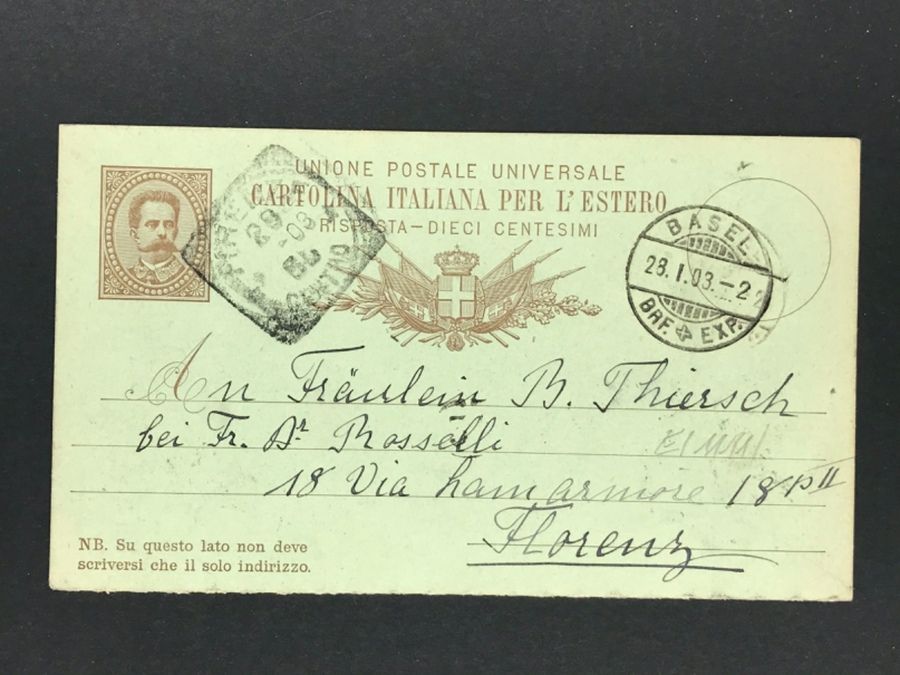 UNIONE POSTALE UNIVERSALE
CARTOLINA ITALIANA PER L'ESTERO
RISPOSTA—DIECI CENTESIMI
BASEL
28.I.03.-2
BRF. EXP.
An Fräulein B. Thiersch
bei Fr. Dr Rosselli
18 Via Lamarmore 18 pII
Florenz
NB. Su questo lato non deve
scriversi che il solo indirizzo.